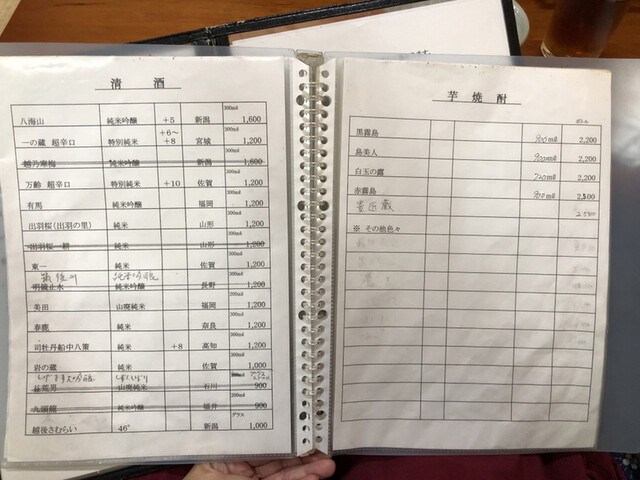 清酒
300ml
八海山 純米吟醸 +5 新潟 1,600
+6～ 300ml
一の蔵 超辛口 特別純米 +8 宮城 1,200
300ml
越乃寒梅 純米吟醸 新潟 1,600
300ml
万齢 超辛口 特別純米 +10 佐賀 1,200
300ml
有馬 純米吟醸 福岡 1,200
300ml
出羽桜(出羽の里) 純米 山形 1,200
300ml
出羽桜一耕 純米 山形 1,200
300ml
東一 純米 佐賀 1,200
純米吟醸 300ml
明鏡止水 純米吟醸 長野 1,200
300ml
美田 山廃純米 福岡 1,200
300ml
春鹿 純米 奈良 1,200
300ml
司牡丹船中八策 純米 +8 高知 1,200
300ml
岩の蔵 純米 佐賀 1,000
山廃純米 石川 900
200ml
九頭龍 純米吟醸 福井 900
グラス
越後さむらい 46° 新潟 1,000
芋焼酎
ボトル
黒霧島 900ml 2,200
島美人 900ml 2,200
白玉の露 720ml 2,200
赤霧島 900ml 2,500
2,500
※ その他色々